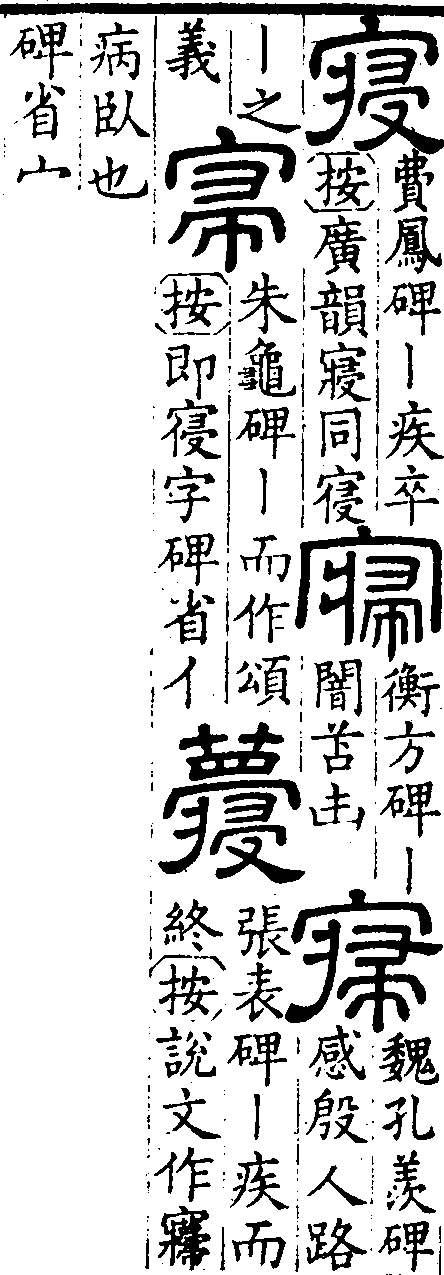 寑
費鳳碑丨疾卒
按廣韻寢同寑
衡方碑丨
闇苫凷
魏孔羨碑
感殷人路
丨之
義
朱龜碑丨而作頌
按即寑字碑省亻
張表碑丨疾而
終按說文作
病臥也
碑省宀